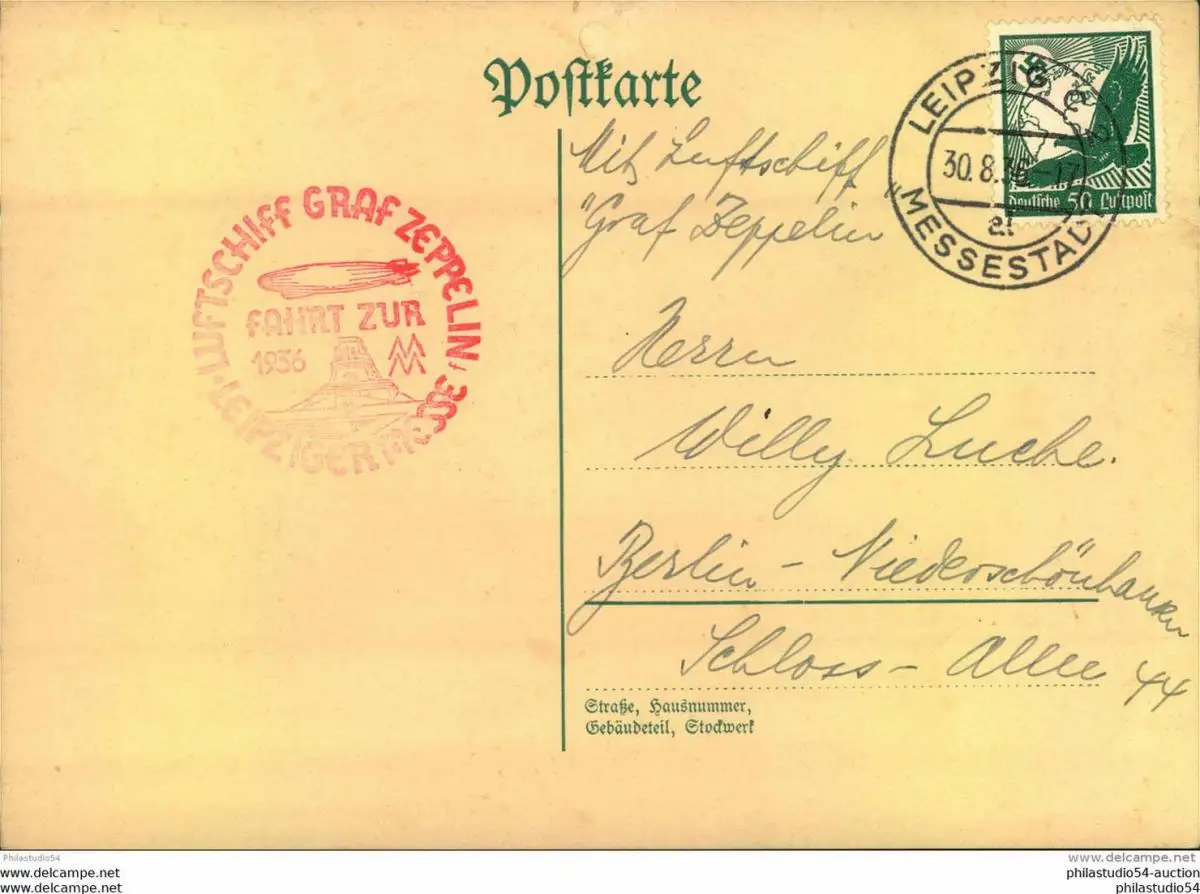 Postkarte
Mit Luftschiff
"Graf Zeppelin
LEIPZIG C2
30.8.36.-17
a1
„MESSESTADT
Deutsche 50 Luftpost
LUFTSCHIFF GRAF ZEPPELIN
FAHRT ZUR
1936
LEIPZIGER MESSE
Herrn
Willy Luche.
Berlin - Niederschönhausen
Schloss - Allee 44
Straße, Hausnummer,
Gebäudeteil, Stockwerk
Philastudio54
www.delcampe.net
www.delcampe.net
philastudio54-auction
philastudio54-auction